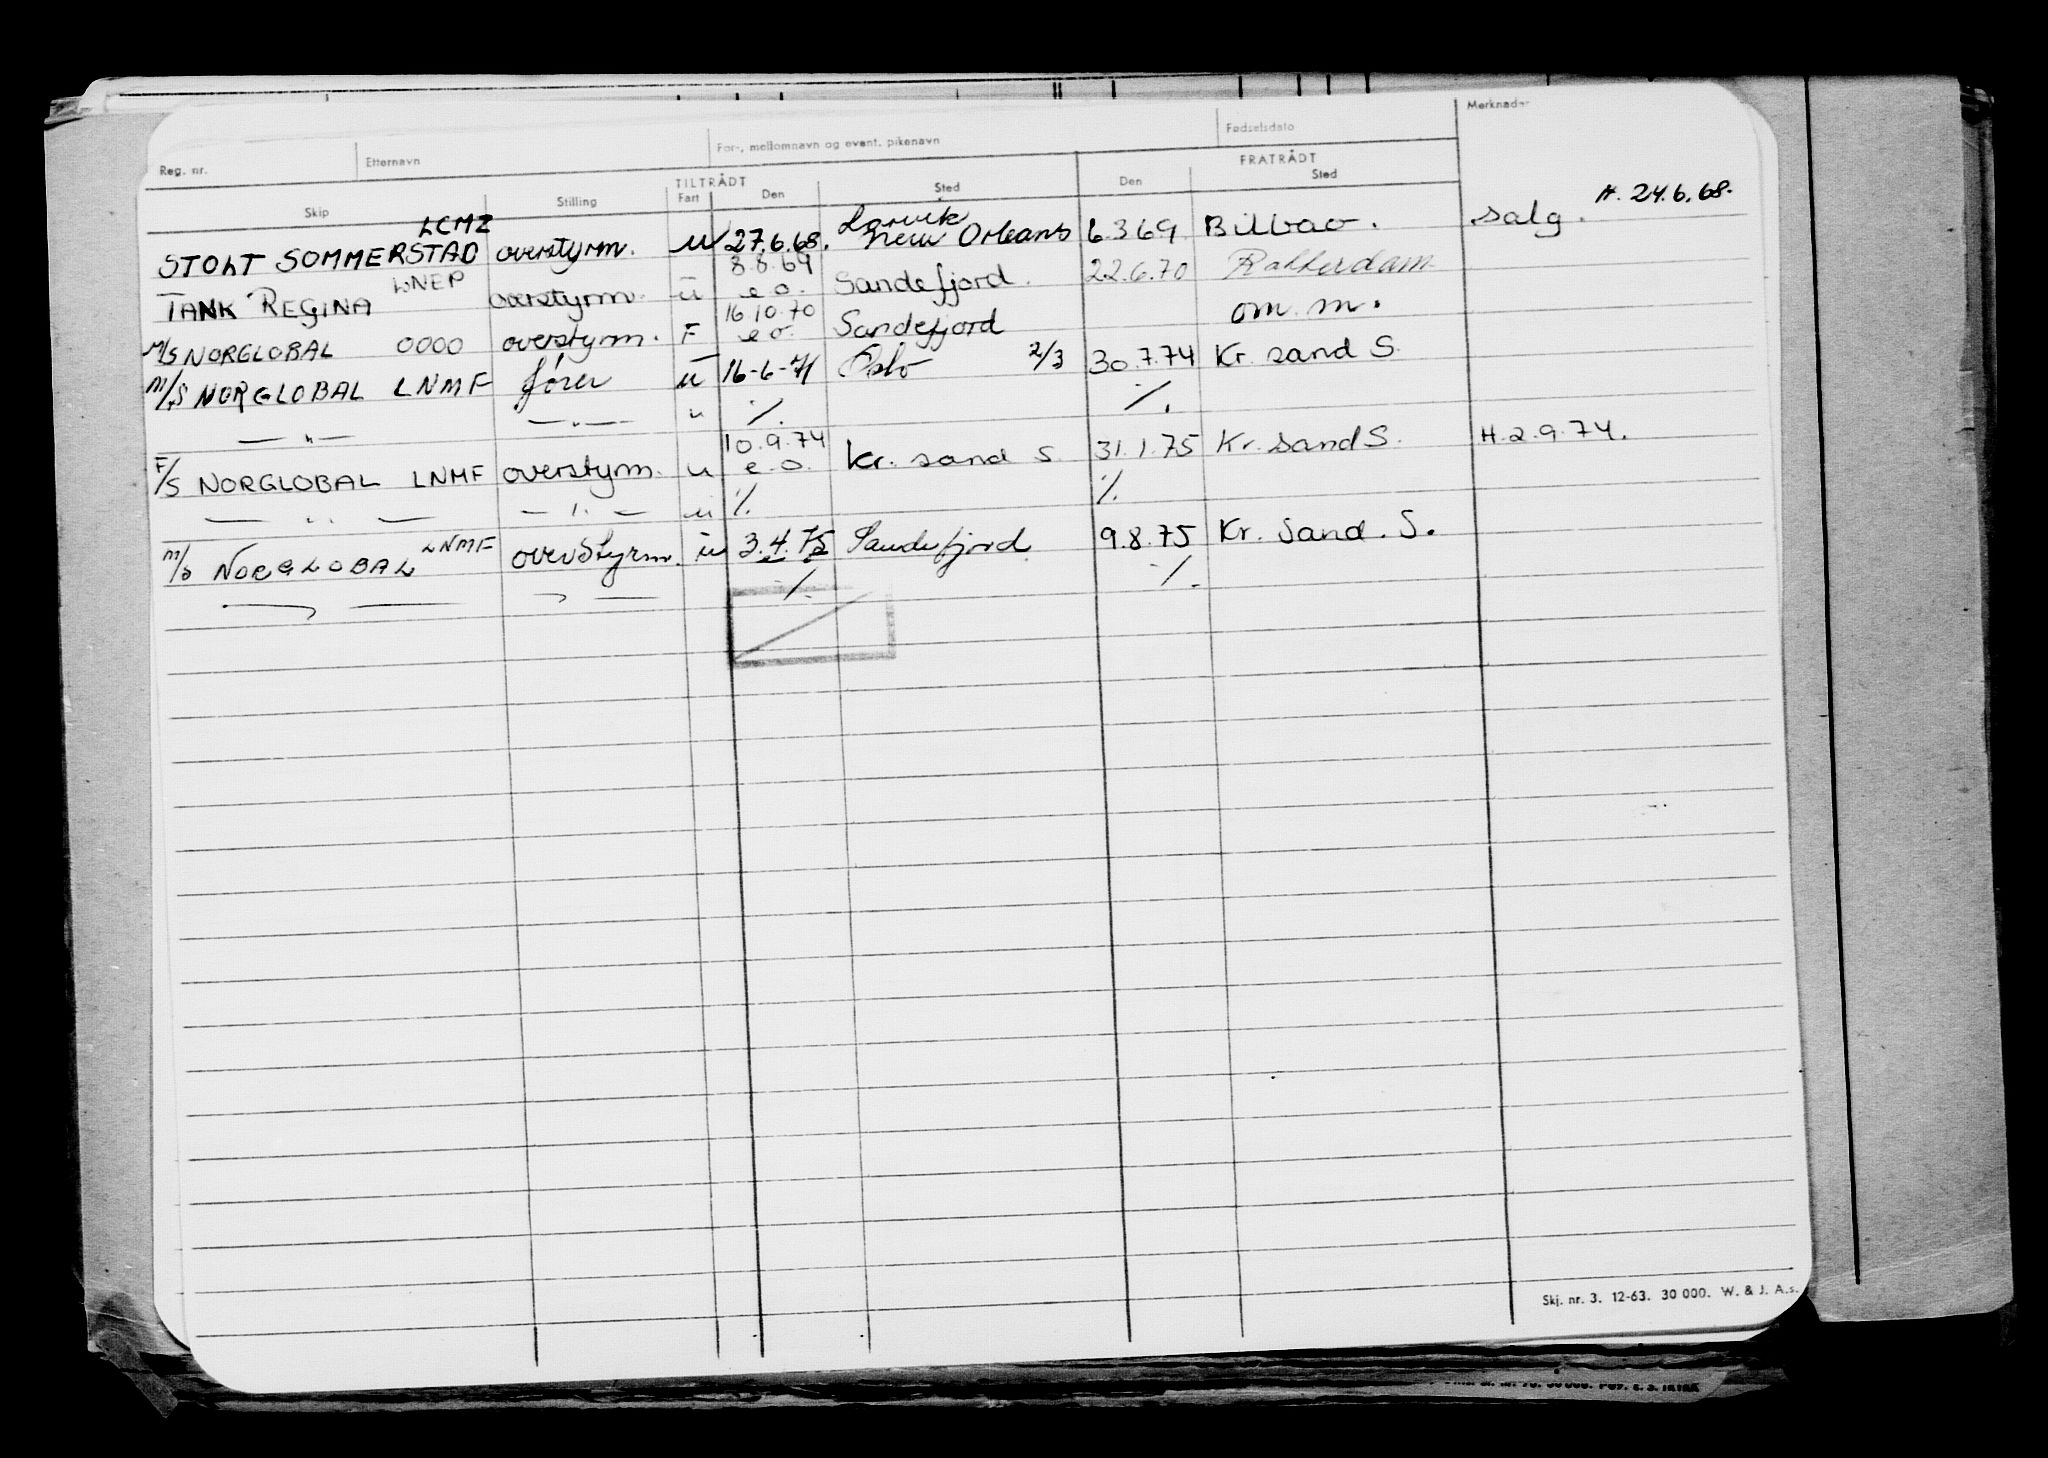 Reg. nr. Etternavn For-, mellomnavn og event. pikenavn Fødselsdato Merknader
TILTRÅDT FRATRÅDT
Skip Stilling Fart Den Sted Den Sted
H. 24.6.68.
STOLT SOMMERSTAD LCMZ overstyrm. u 27.6.68. Larvik New Orleans 6.3.69. Bilbao. salg.
TANK REGINA LNEP overstyrm. u 8.8.69 e.o. Sandefjord. 22.6.70 Rotterdam
M/S NORGLOBAL 0000 overstyrm. F 16.10.70 e.o. Sandefjord om. m.
M/S NORGLOBAL LNMF fører u 16-6-71 Oslo 2/3 30.7.74 Kr. sand S.
— " — — " — u ./. ./.
F/S NORGLOBAL LNMF overstyrm. u 10.9.74 e.o. Kr. sand S. 31.1.75 Kr. sand S. H. 2.9.74.
— " — — " — u ./. ./.
M/S NORGLOBAL LNMF overstyrm. u 3.4.75 Sandefjord 9.8.75 Kr. Sand. S.
— " — — " — ./. ./.
Skj. nr. 3. 12-63. 30 000. W. & J. A.s.